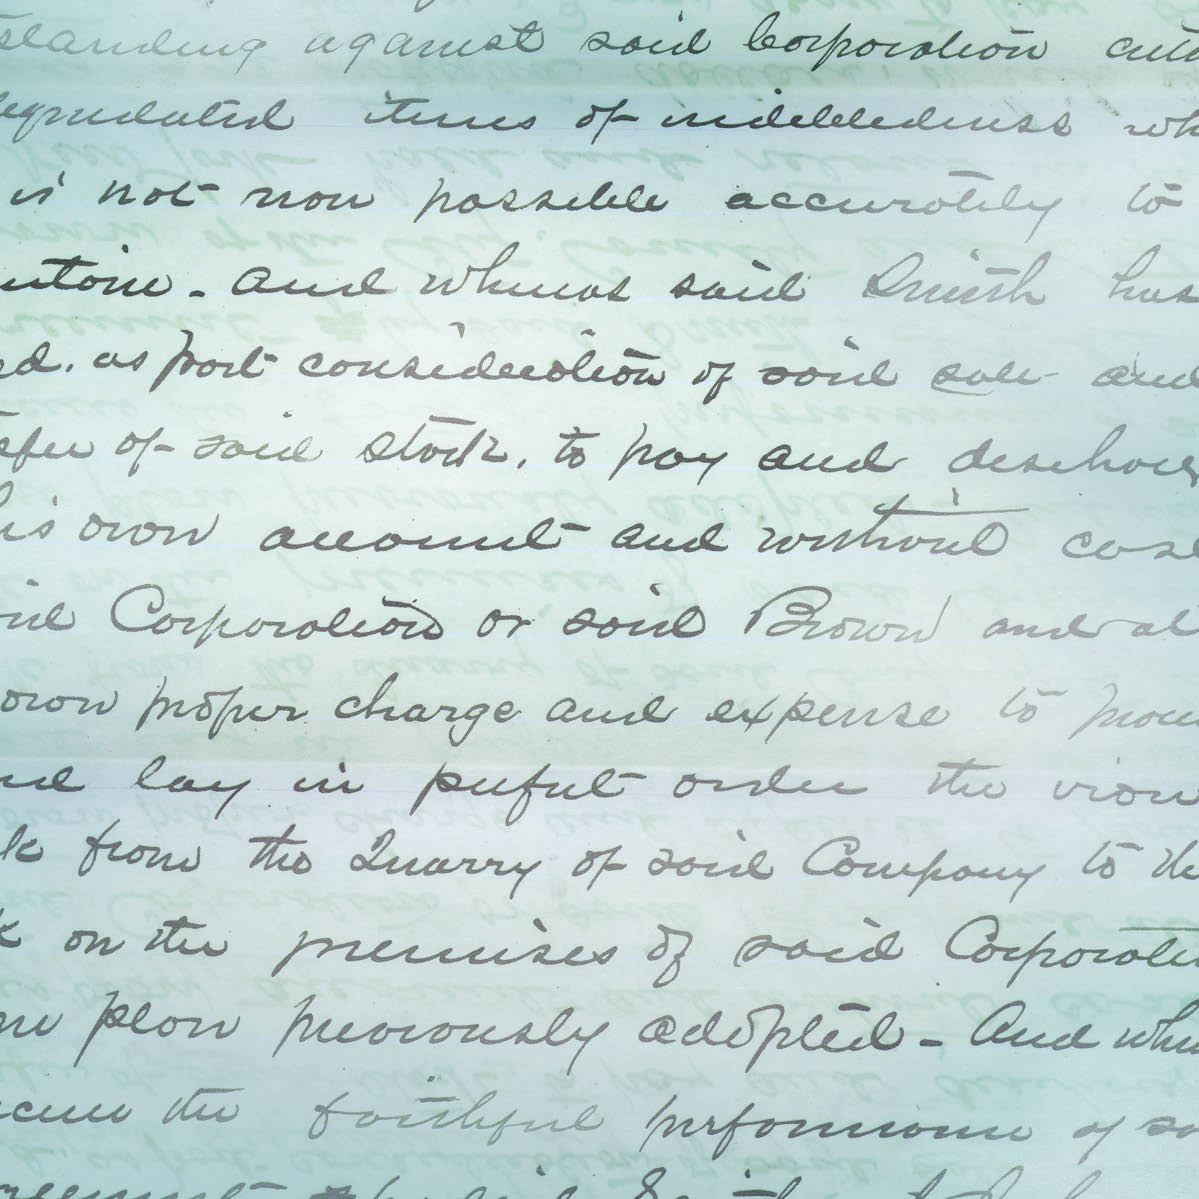 standing against said Corporation and
items of indebtedness wh
is not now possible accurately to
and whereas said Smith has
ed. as part consideration of said sale and
sfer of said stock, to pay and discharg
his own account and without cost
aid Corporation or said Brown and at
own proper charge and expense to
nd lay in perfect order the
k from the Quarry of said Company to the
k on the premises of said Corporatio
plan previously adopted - And whe
the faithful performance of sa